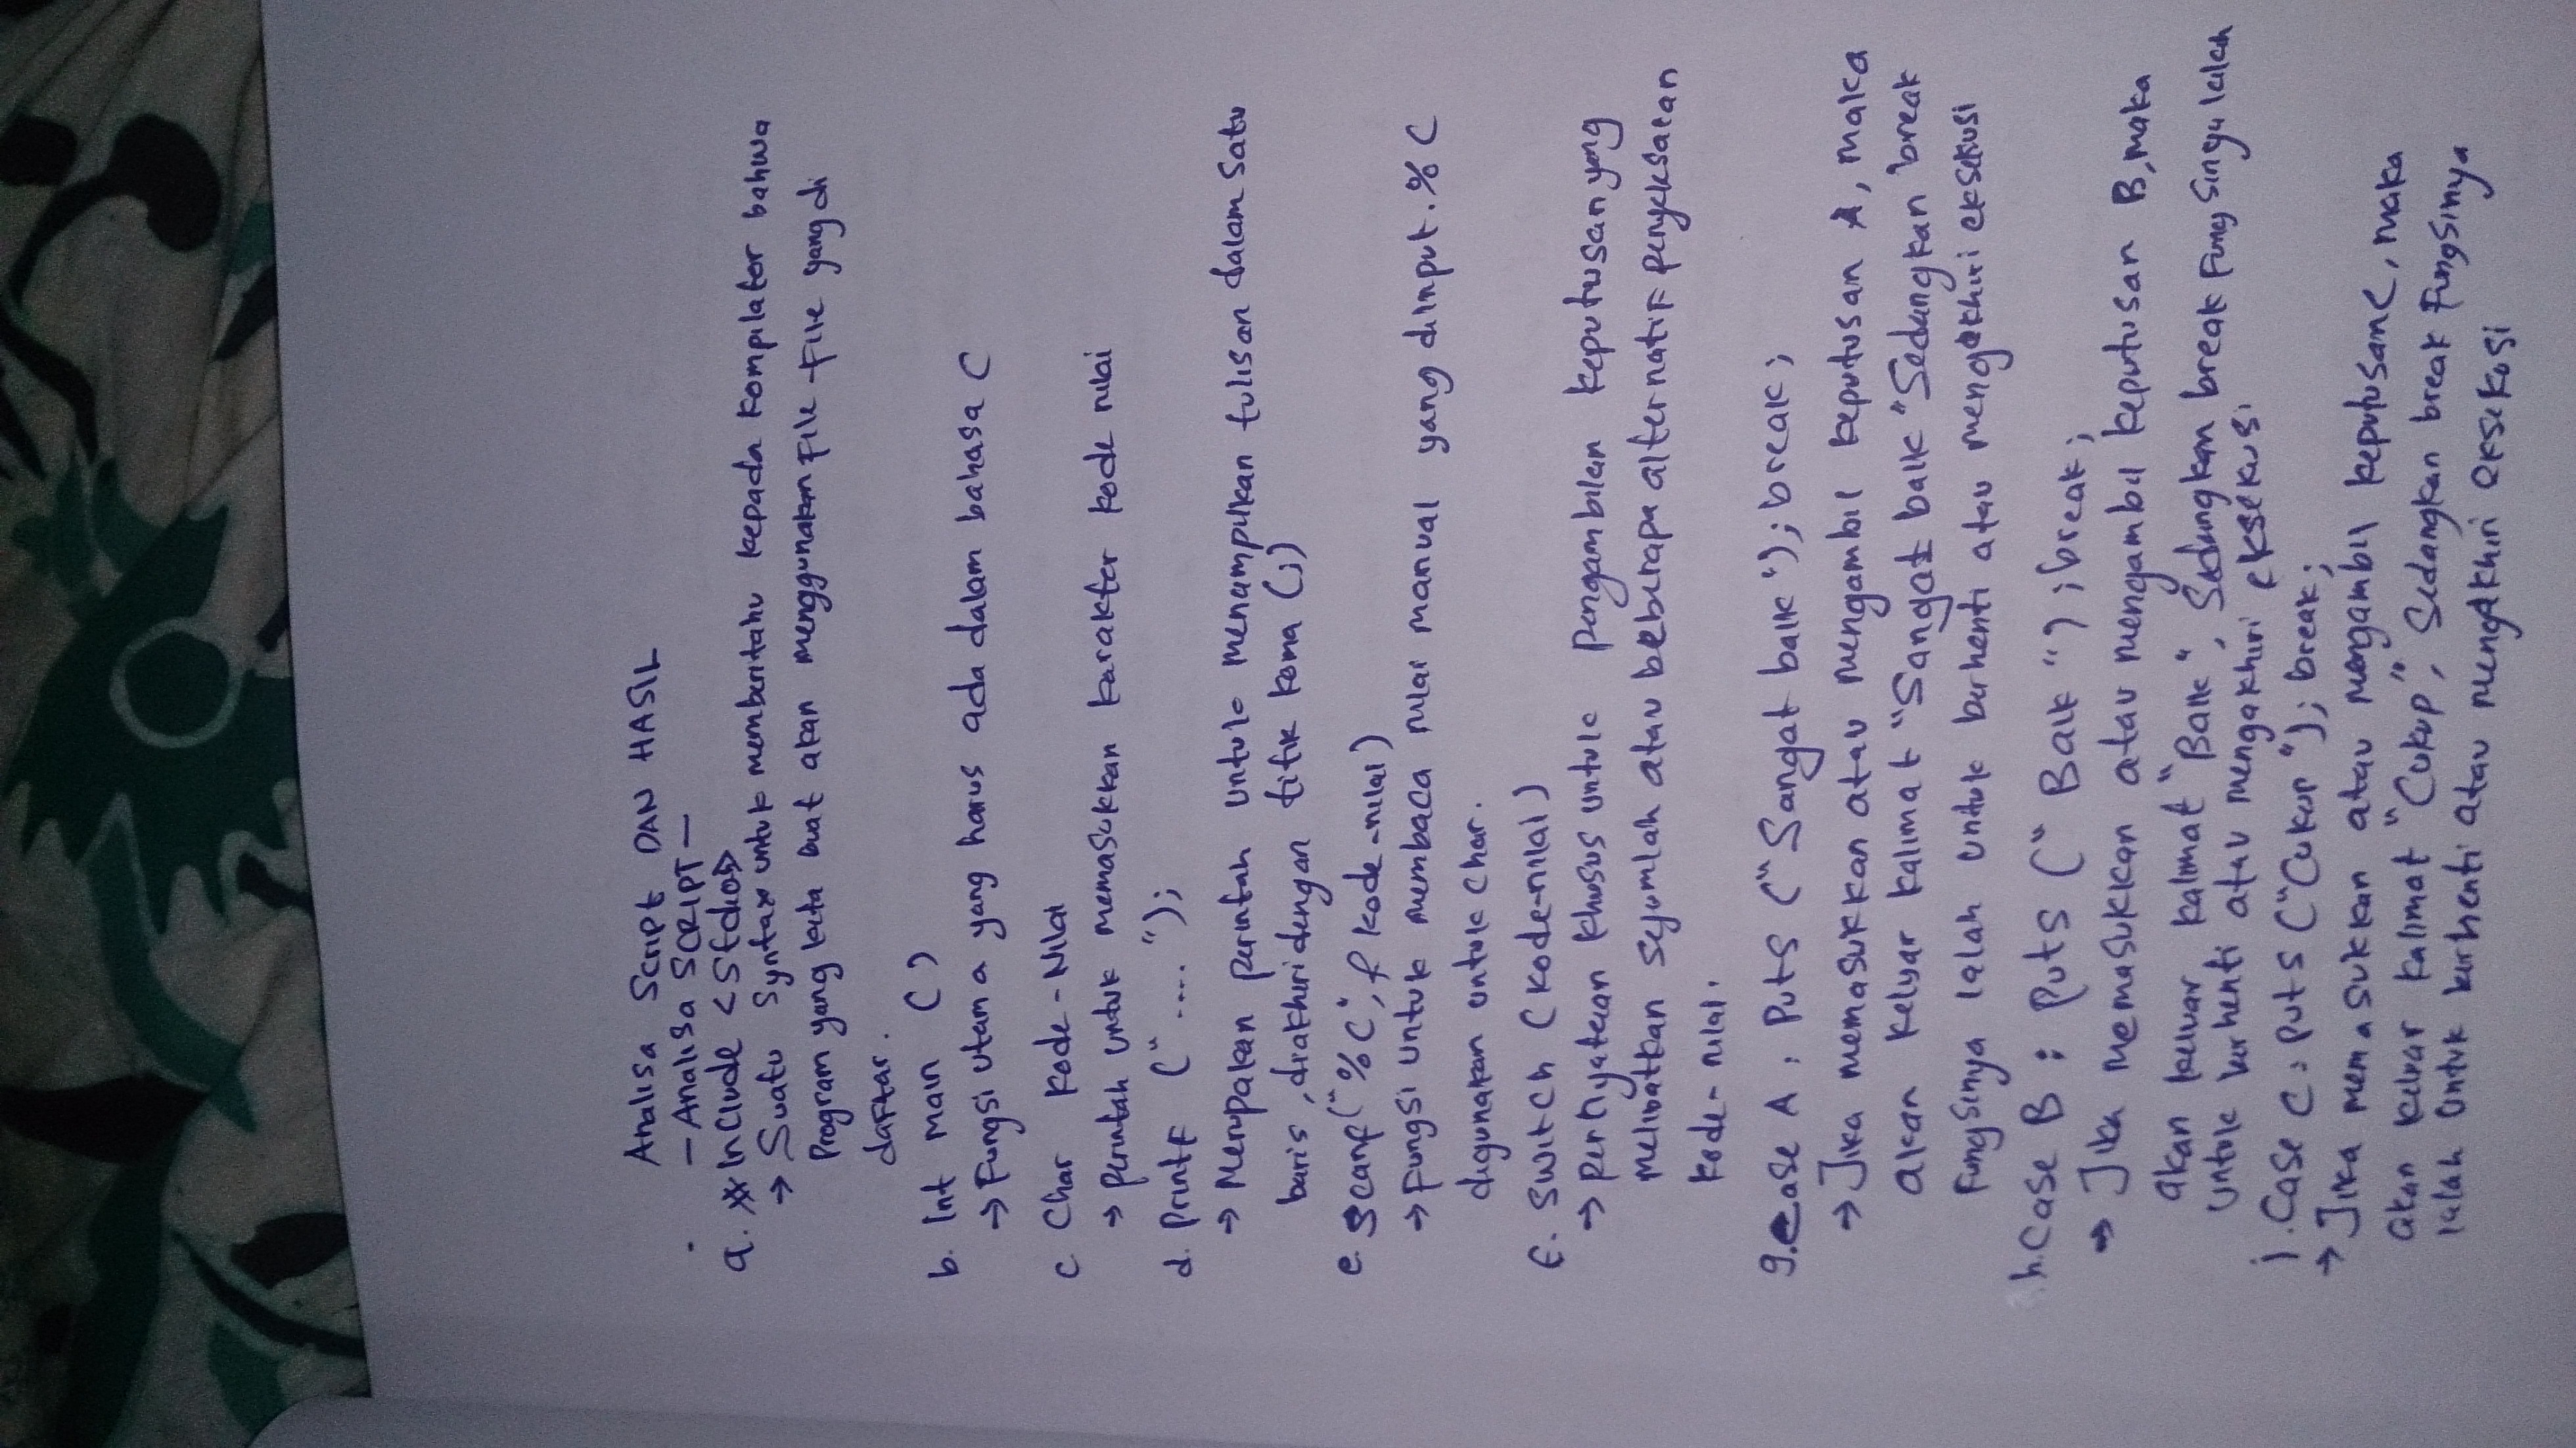 Analisa Script DAN HASIL
- Analisa SCRIPT -
a. #Include <Stdio>
→ Suatu Syntax untuk memberitahu kepada kompilator bahwa
Program yang kita buat akan menggunakan File-File yang di
daftar.
b. Int main ()
→ Fungsi utama yang harus ada dalam bahasa C
c Char Kode-Nilai
→ perintah untuk memasukkan karakter kode nilai
d. PrintF ("....");
→ Merupakan perintah untuk menampilkan tulisan dalam satu
baris, diakhiri dengan titik koma (;)
e. Scanf("%C", & kode-nilai)
→ Fungsi untuk membaca nilai manual yang diinput. %C
digunakan untuk Char.
F. Switch (kode-nilai)
→ Pernyataan khusus untuk pengambilan keputusan yang
melibatkan sejumlah atau beberapa alternatif penyeksaan
kode-nilai.
g. case A : Puts ("Sangat baik"); break;
→ Jika memasukkan atau mengambil keputusan A, maka
akan keluar kalimat "Sangat baik" Sedangkan break
Fungsinya Ialah Untuk berhenti atau mengakhiri eksekusi
h. Case B : Puts ("Baik"); break;
→ Jika memasukkan atau mengambil keputusan B, maka
akan keluar kalimat "Baik", Sedangkan break Fungsinya Ialah
Untuk berhenti atau mengakhiri eksekusi
j. Case C : Puts ("Cukup"); break;
→ Jika memasukkan atau mengambil keputusan C, maka
akan keluar kalimat "Cukup", Sedangkan break Fungsinya
Ialah Untuk berhenti atau mengakhiri eksekusi